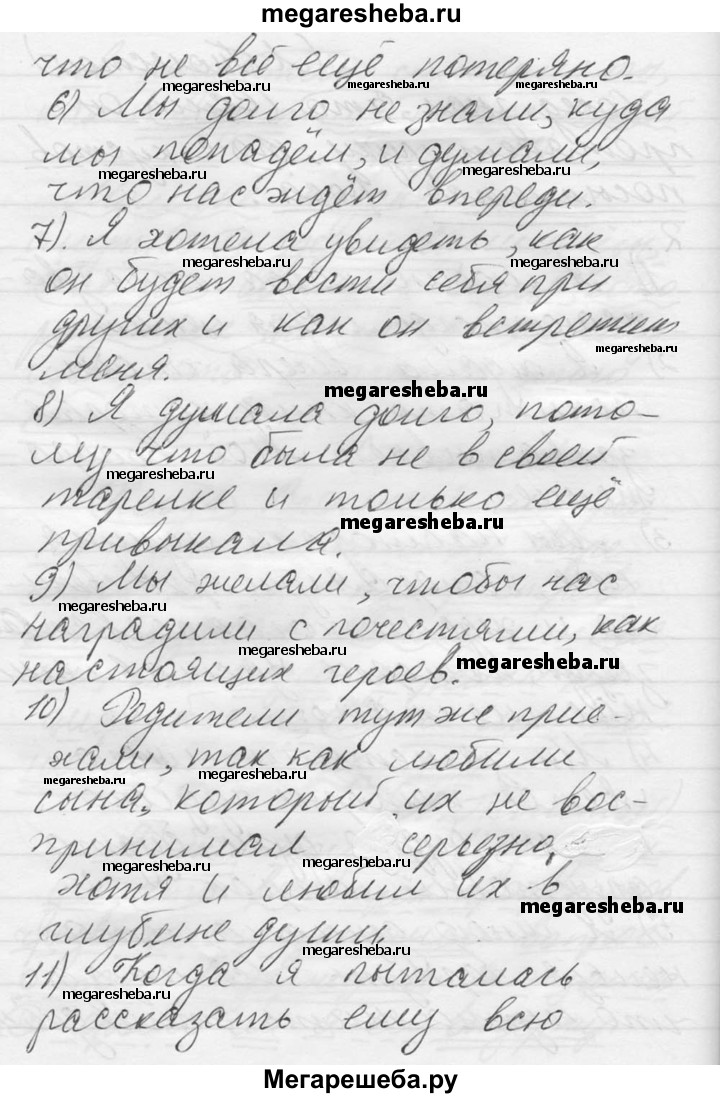 megaresheba.ru
что не всё ещё потеряно.
megaresheba.ru megaresheba.ru
6) Мы долго не знали, куда
megaresheba.ru
мы попадём, и думали,
megaresheba.ru megaresheba.ru
что нас ждёт впереди.
7). Я хотела увидеть, как
megaresheba.ru megaresheba.ru
он будет вести себя при
других и как он встретит
megaresheba.ru
меня.
megaresheba.ru
8) Я думала долго, пото-
му что была не в своей
megaresheba.ru
тарелке и только ещё
megaresheba.ru
привыкала.
9) Мы желали, чтобы нас
megaresheba.ru
наградили с почестями, как
megaresheba.ru
настоящих героев.
megaresheba.ru
10) Родители тут же прие-
хали, так как любили
megaresheba.ru megaresheba.ru
сына, который их не вос-
принимал серьезно,
megaresheba.ru megaresheba.ru
хотя и любил их в
megaresheba.ru
глубине души
megaresheba.ru
11) Когда я пыталась
megaresheba.ru
рассказать ему всю
Мегарешеба.ру